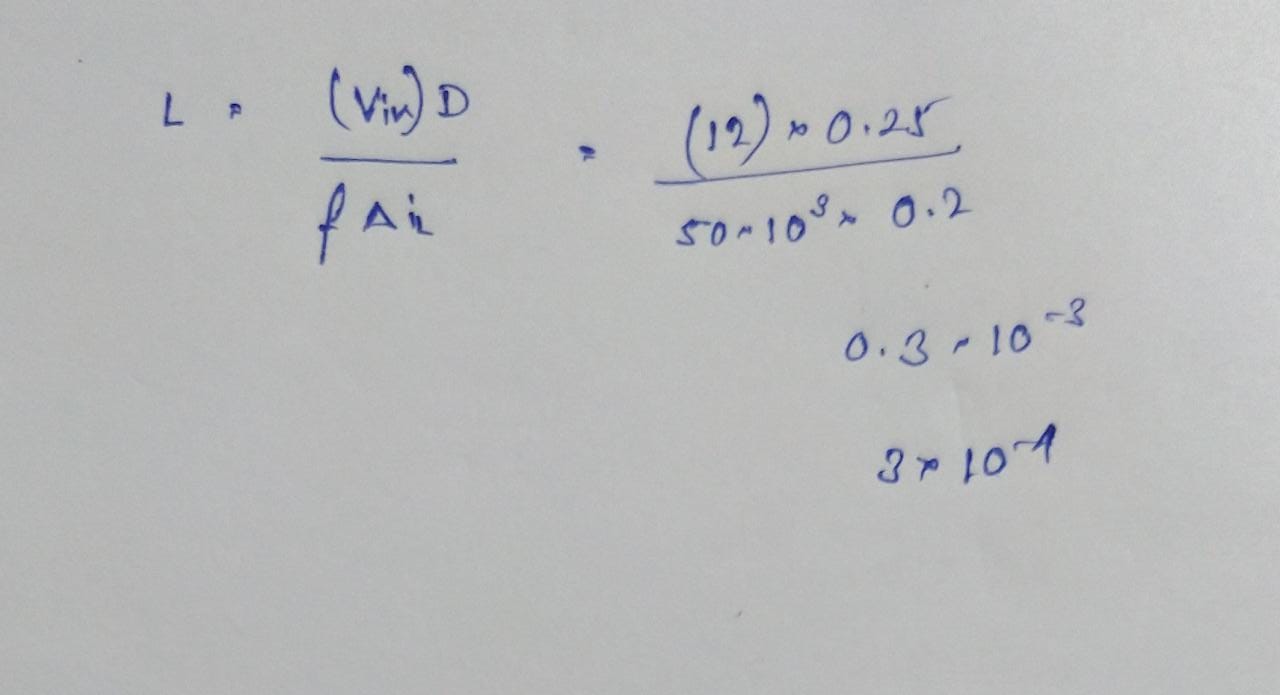 L = (Vin) D / f Δi_L = (12) × 0.25 / 50 × 10³ × 0.2
0.3 × 10⁻³
3 × 10⁻⁴